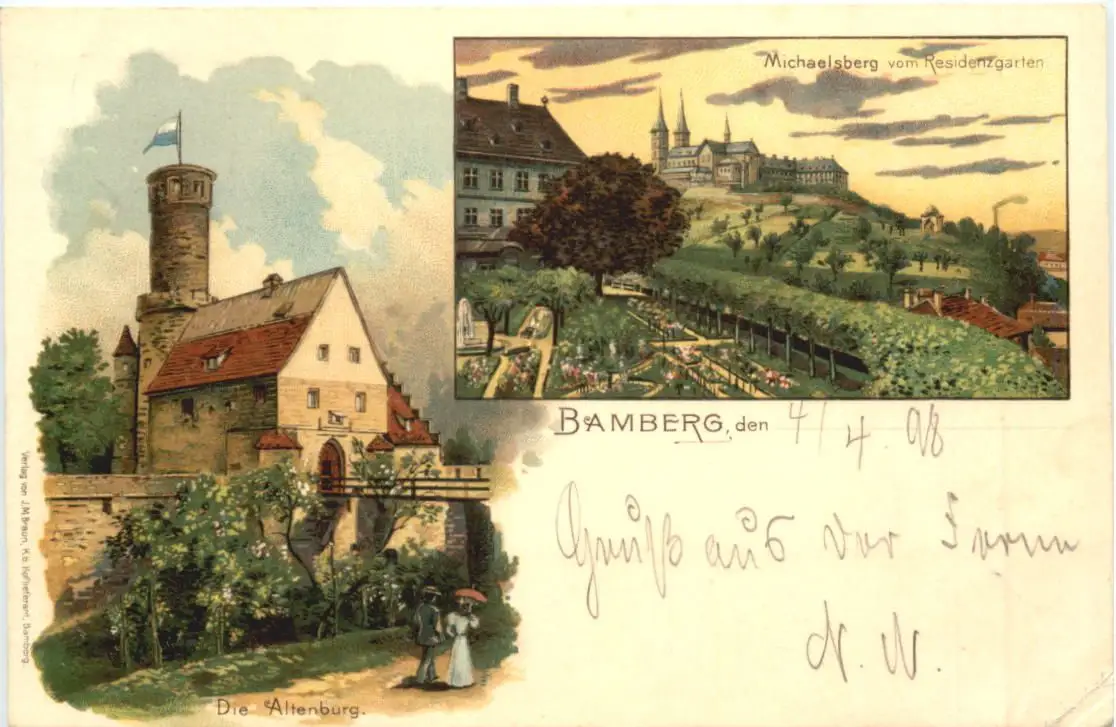 Michaelsberg vom Residenzgarten
BAMBERG, den 4/4. 98
Gruß aus der Ferne
N. N.
Die Altenburg.
Verlag von J.M. Braun, K.b. Hoflieferant, Bamberg.